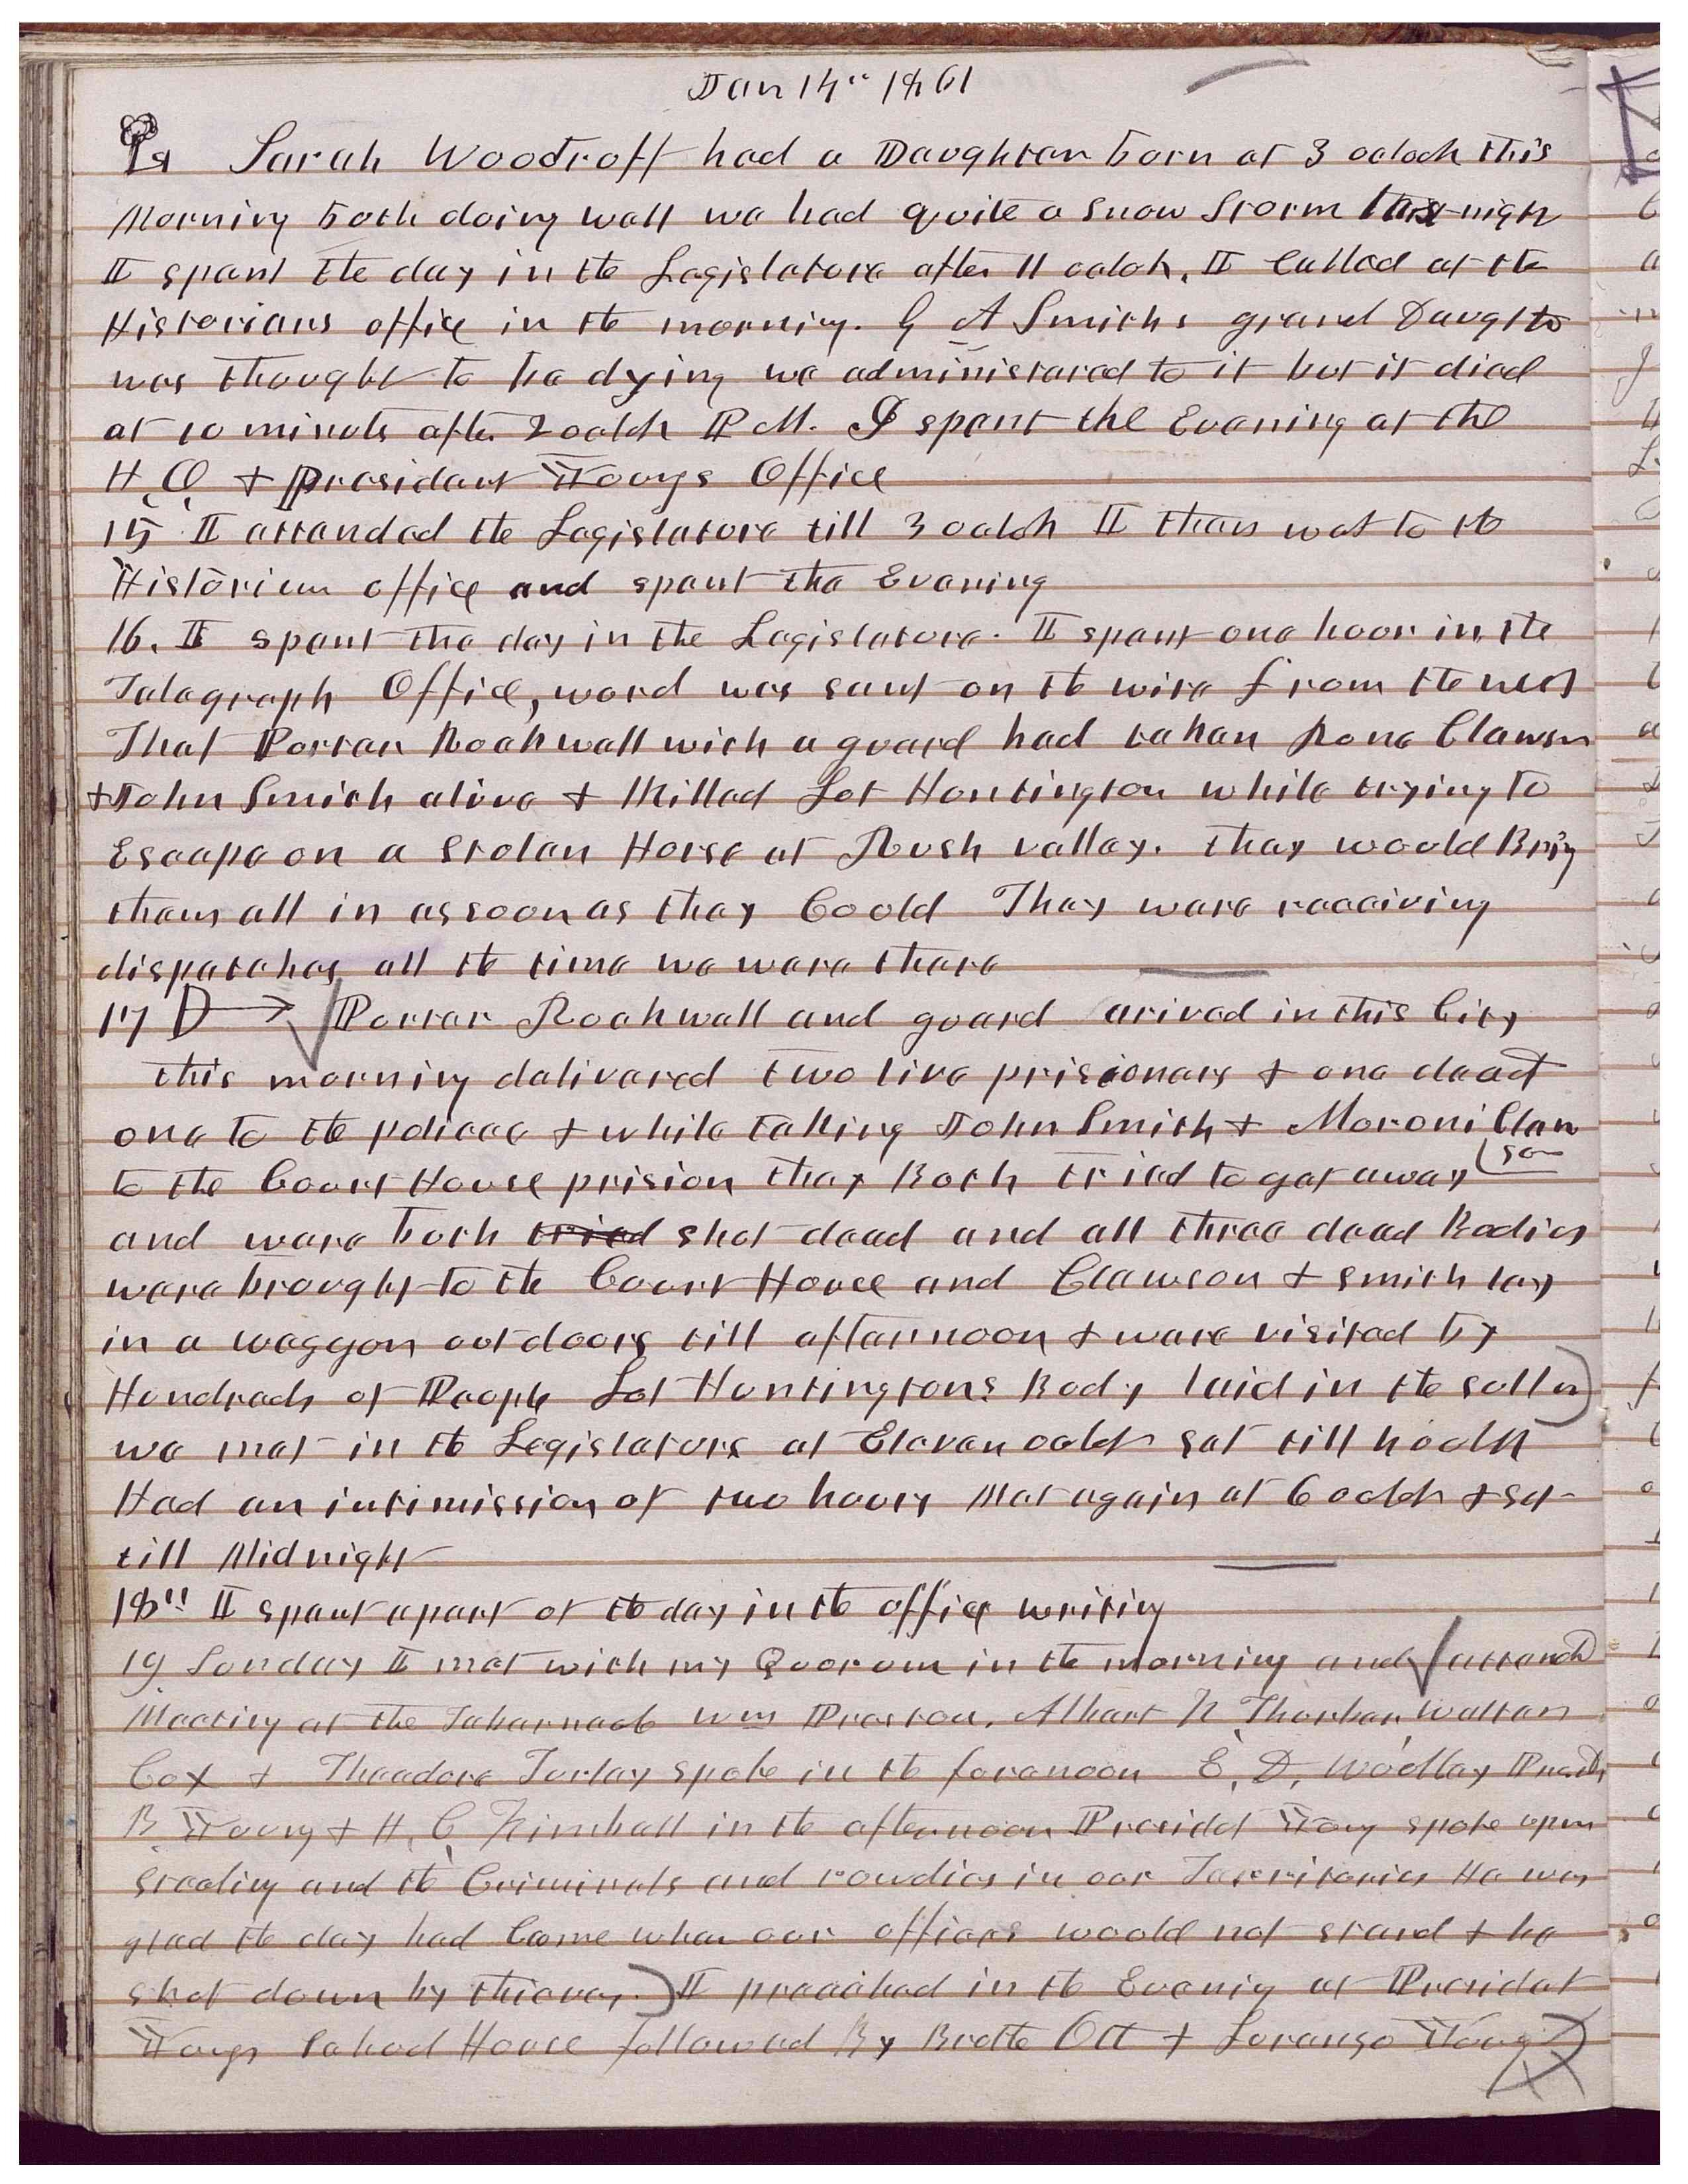 Jan 14" 1861
Sarah Woodruff had a Daughter born at 3 oclock this
Morning both doing well we had quite a snow storm this night
I spent the day in the Legislature after 11 oclok. I Called at the
Historians office in the morning. G A Smiths grand Daughter
was thought to be dying we administered to it but it died
at 10 minuts after 2 oclok P M. I spent the Evening at the
H. O. & President Youngs Office
15 I attended the Legislature till 3 oclok I then wet to the
Historian office and spent the Evening
16. I spent the day in the Legislature. I spent one hour in the
Telegraph Office, word was sent on the wire from the west
That Porter Rockwell with a guard had taken Rone Clawsn
& John Smith alive & Killed Lot Huntington while trying to
Escape on a Stolen Horse at Rush valley. they would Bring
them all in as soon as they Could They were receiving
dispatches all the time we were there
17 Porter Rockwell and guard arived in this City
this morning delivered two live prisioners & one dead
one to the police & while taking John Smith & Moroni Claw
son
to the Court House prision they Both tried to get away
and were both tried shot dead and all three dead Bodies
were brought to the Court House and Clawson & Smith lay
in a waggon outdoors till afternoon & were visited by
Hundreds of People Lot Huntingtons Body laid in the celler
we met in the Legislature at Eleven oclok sat till 4 oclk
Had an intimission of two hours Met again at 6 oclok & sat
till Midnight
18" I spent a part of the day in the office writing
19 Sunday I met with my Quorum in the morning and attend
Meeting at the Tabernacle Wm Preston. Albert K Thurber, Walter
Cox & Theadore Turley spoke in the forenoon E. D. Woolley Presidt
B Young & H. C. Kimball in the afternoon Presidet Young spoke upon
Stealing and the Criminals and rowdies in our Territories He was
glad the day had Come when our officers would not stand & be
shot down by thieves. I preached in the Evenig at Presidet
Youngs School House followed By Brother Ott & Loranzo Young